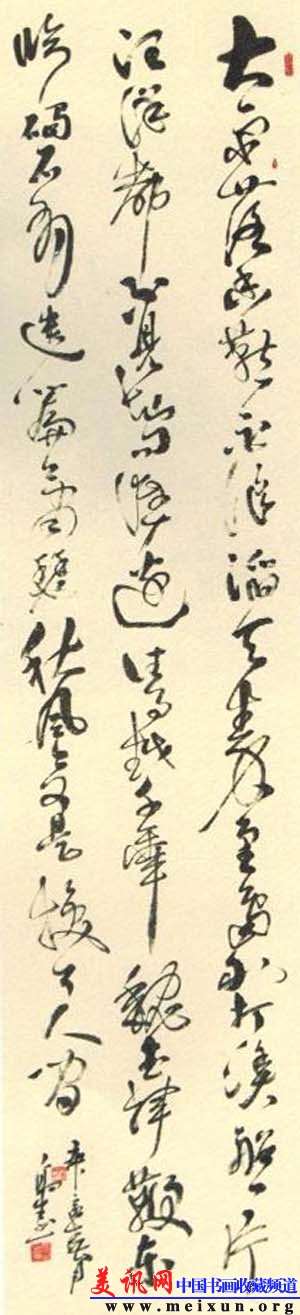 大雨落幽燕白浪滔天秦皇島外打漁船一片
汪洋都不見知向誰邊往事越千年魏武揮鞭東
臨碣石有遺篇蕭瑟秋風今又是換了人間
美讯网 中国书画收藏频道
www.meixun.org